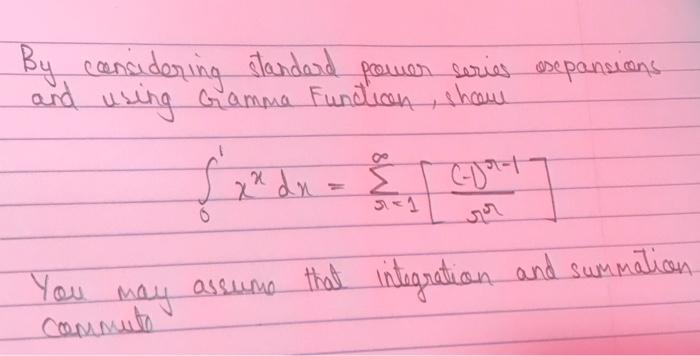 By considering standard power series expansions
and using Gamma Function, show
∫₀¹ xˣ dx = ∑_{r=1}^{∞} [ (-1)^{r-1} / r^r ]
You may assume that integration and summation
commute